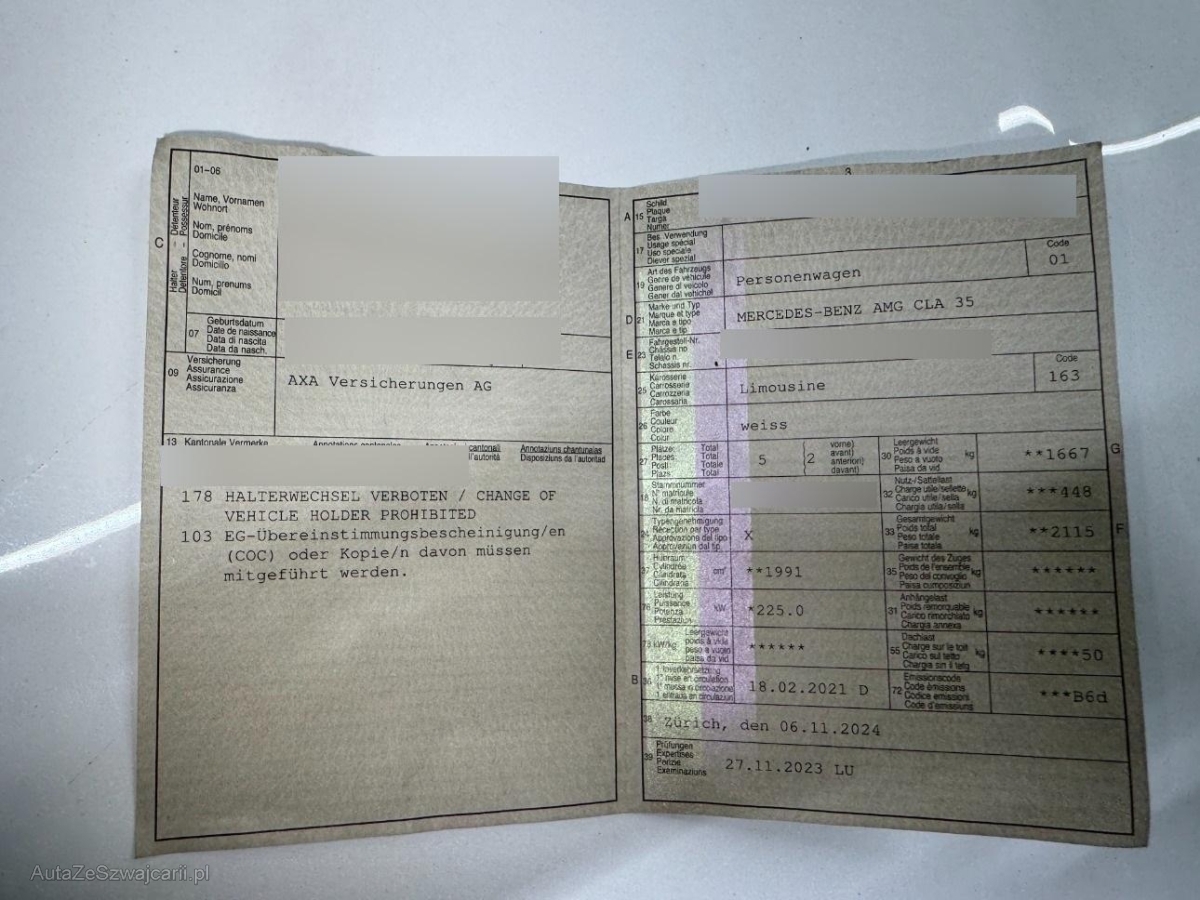 01-06
Name, Vornamen
Wohnort
Nom, prénoms
Domicile
Cognome, nomi
Domicilio
Num, prenums
Domicil
Halter
Détenteur
Detentore
Possessur
C
07
Geburtsdatum
Date de naissance
Data di nascita
Data da nasch.
09
Versicherung
Assurance
Assicurazione
Assicuranza
AXA Versicherungen AG
13 Kantonale Vermerke
cantonali
l'autorità
Annotaziuns chantunalas
Disposiziuns da l'autoritad
178 HALTERWECHSEL VERBOTEN / CHANGE OF
VEHICLE HOLDER PROHIBITED
103 EG-Übereinstimmungsbescheinigung/en
(COC) oder Kopie/n davon müssen
mitgeführt werden.
3
A 15
Schild
Plaque
Targa
Numer
17
Bes. Verwendung
Usage spécial
Uso speciale
Diever spezial
19
Art des Fahrzeugs
Genre de véhicule
Genere di veicolo
Gener dal vehichel
Personenwagen
Code
01
D 21
Marke und Typ
Marque et type
Marca e tipo
Marca e tip
MERCEDES-BENZ AMG CLA 35
E 23
Fahrgestell-Nr.
Châssis no
Telaio n.
Schassis nr.
25
Karosserie
Carrosserie
Carrozzeria
Carossaria
Limousine
Code
163
26
Farbe
Couleur
Colore
Colur
weiss
27
Plätze
Places
Posti
Plazs
Total
Total
Totale
Total
5
(2
vorne)
avant)
anteriori)
davant)
30
Leergewicht
Poids à vide
Peso a vuoto
Paisa da vid
kg
**1667
G
18
Stammnummer
N° matricule
N. di matricola
Nr. da matricla
32
Nutz-/Sattellast
Charge utile/sellette
Carico utile/sella
Chargia utila/sella
kg
***448
24
Typengenehmigung
Réception par type
Approvazione del tipo
Approvaziun dal tip
X
33
Gesamtgewicht
Poids total
Peso totale
Paisa totala
kg
**2115
F
37
Hubraum
Cylindrée
Cilindrata
Cilindrada
cm³
**1991
35
Gewicht des Zuges
Poids de l'ensemble
Peso del convoglio
Paisa cumposiziun
kg
******
76
Leistung
Puissance
Potenza
Prestaziun
kW
*225.0
31
Anhängelast
Poids remorquable
Carico rimorchiato
Chargia annexa
kg
******
kW/kg
Leergewicht
poids à vide
peso a vuoto
paisa da vid
******
55
Dachlast
Charge sur le toit
Carico sul tetto
Chargia sin il tetg
kg
****50
B 36
1. Inverkehrsetzung
1re mise en circulation
1a messa in circolazione
1. entrada en circulaziun
18.02.2021 D
72
Emissionscode
Code émissions
Codice emissioni
Code d'emissiuns
***B6d
38
Zürich, den 06.11.2024
39
Prüfungen
Expertises
Exeminaziuns
27.11.2023 LU
AutaZeSzwajcarii.pl